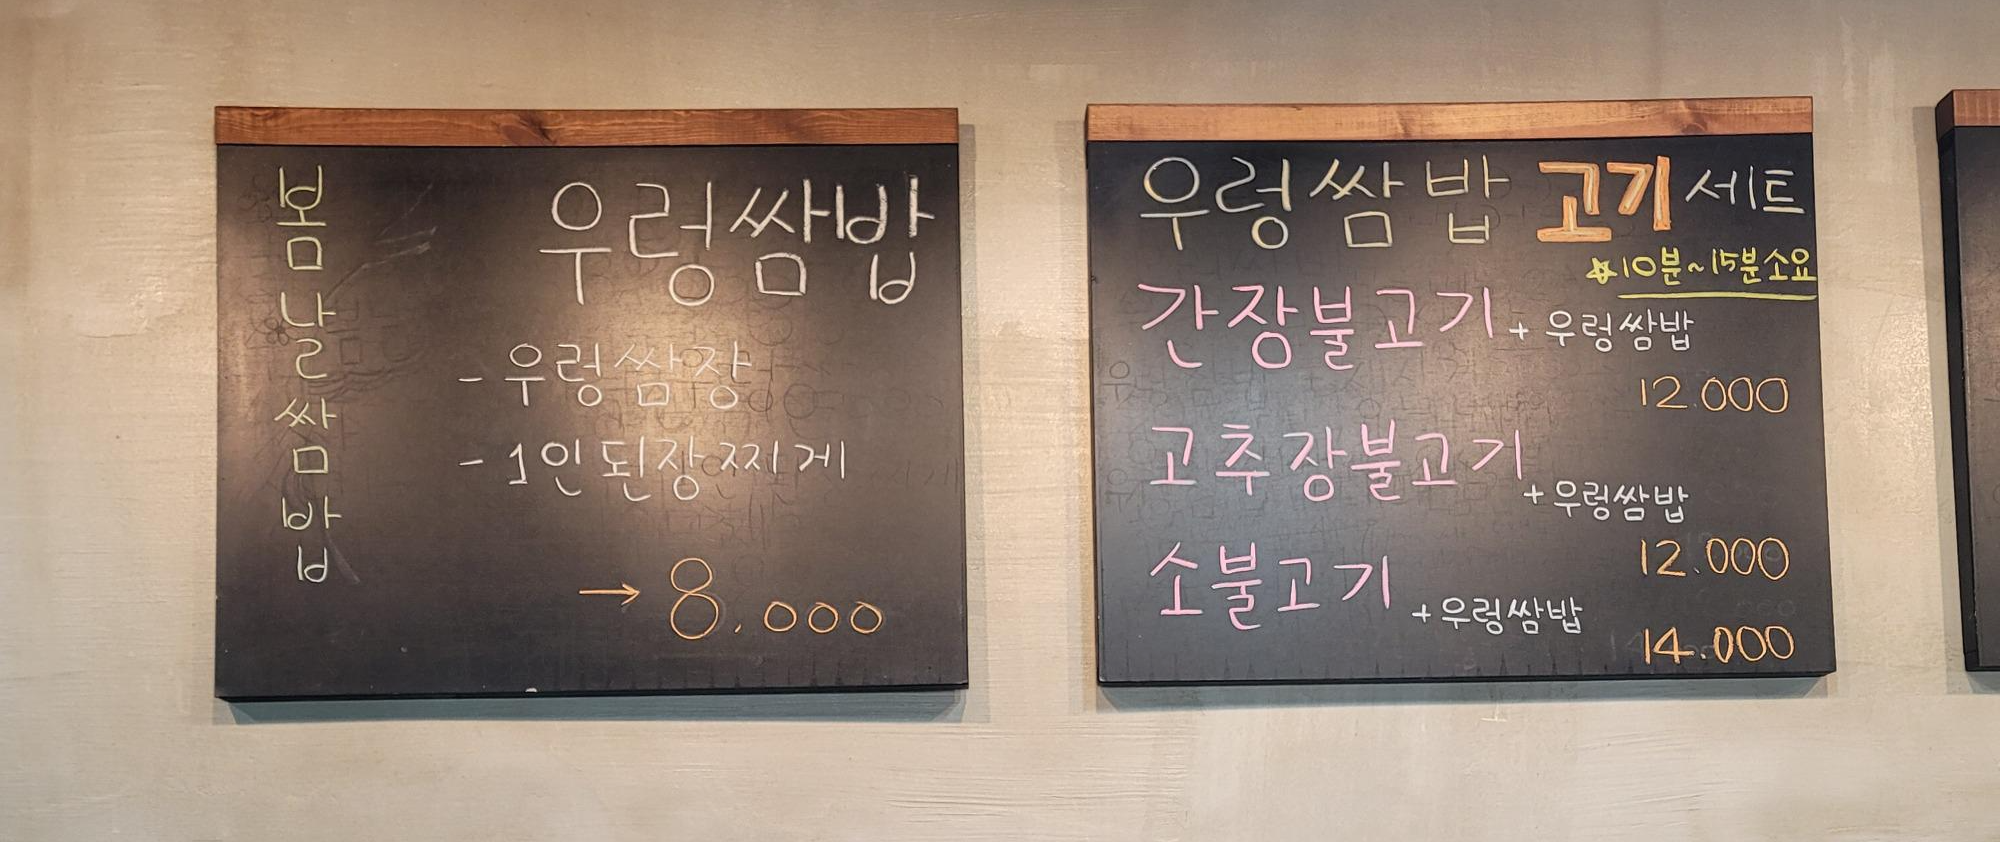 봄날쌈밥
우렁쌈밥
- 우렁쌈장
- 1인된장찌게
→ 8.000
우렁쌈밥 고기 세트
☆10분~15분소요
간장불고기 + 우렁쌈밥
12.000
고추장불고기
+ 우렁쌈밥
12.000
소불고기 + 우렁쌈밥
14.000